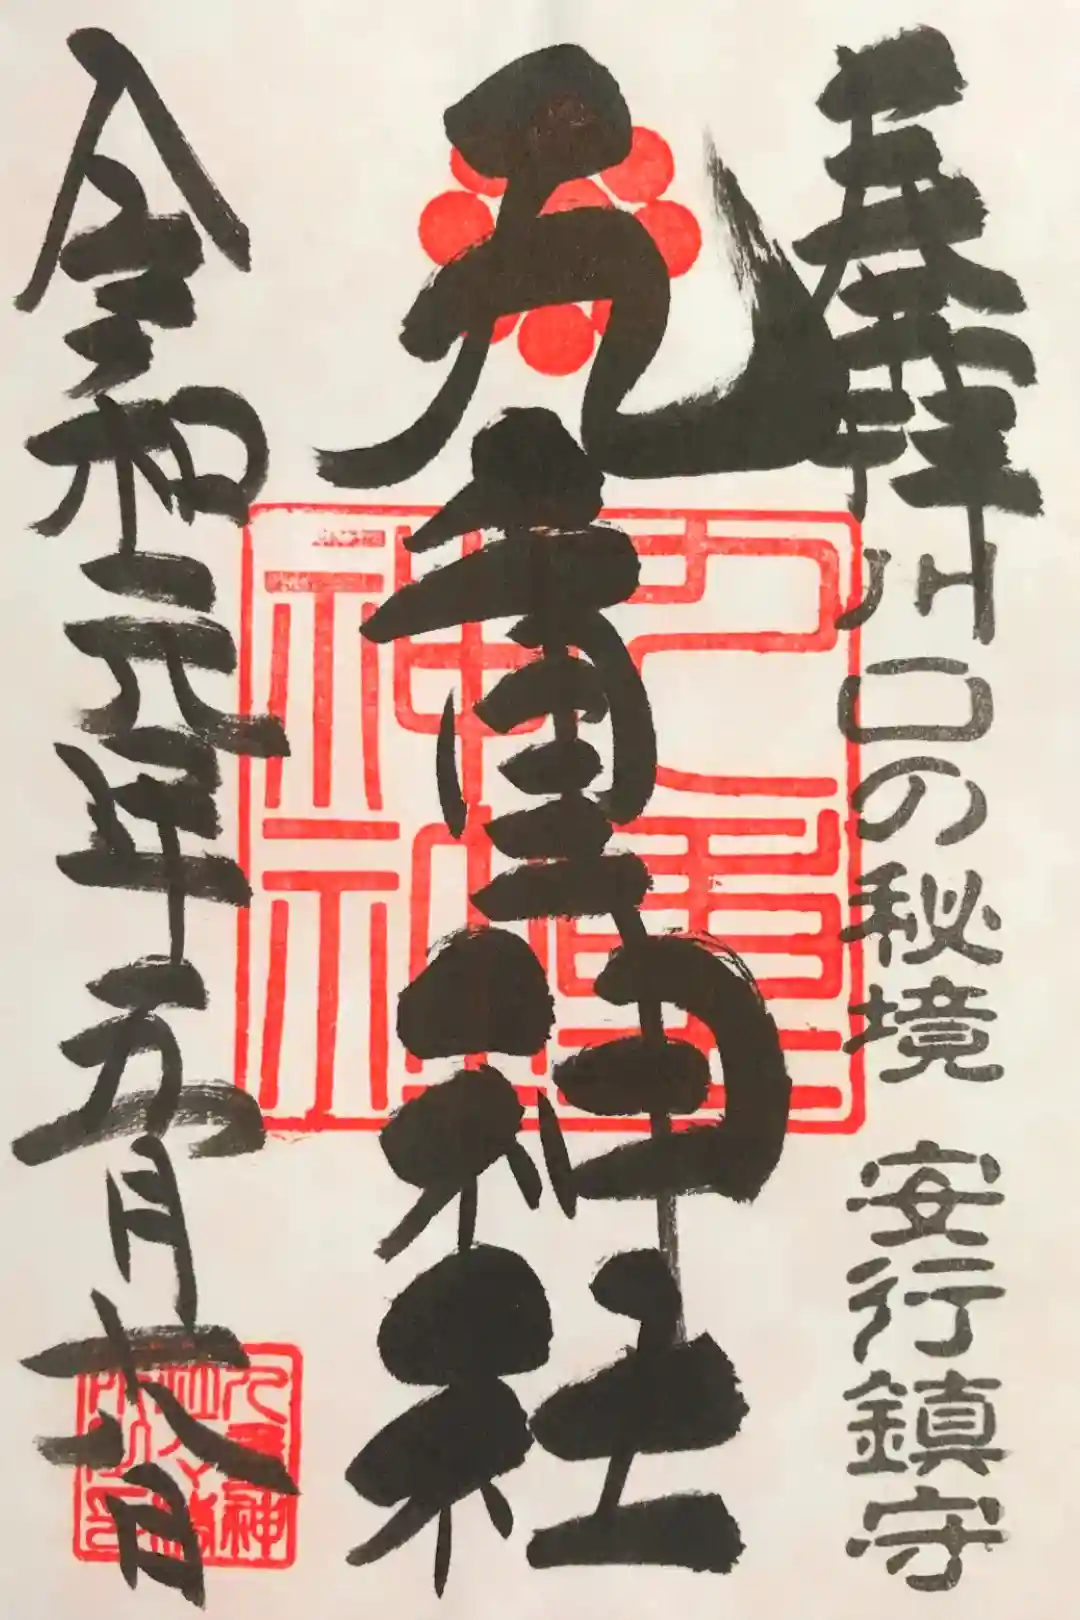 奉拝
川口の秘境 安行鎮守
九重神社
九重
神社
令和元年五月
九重神
社々務
所之印